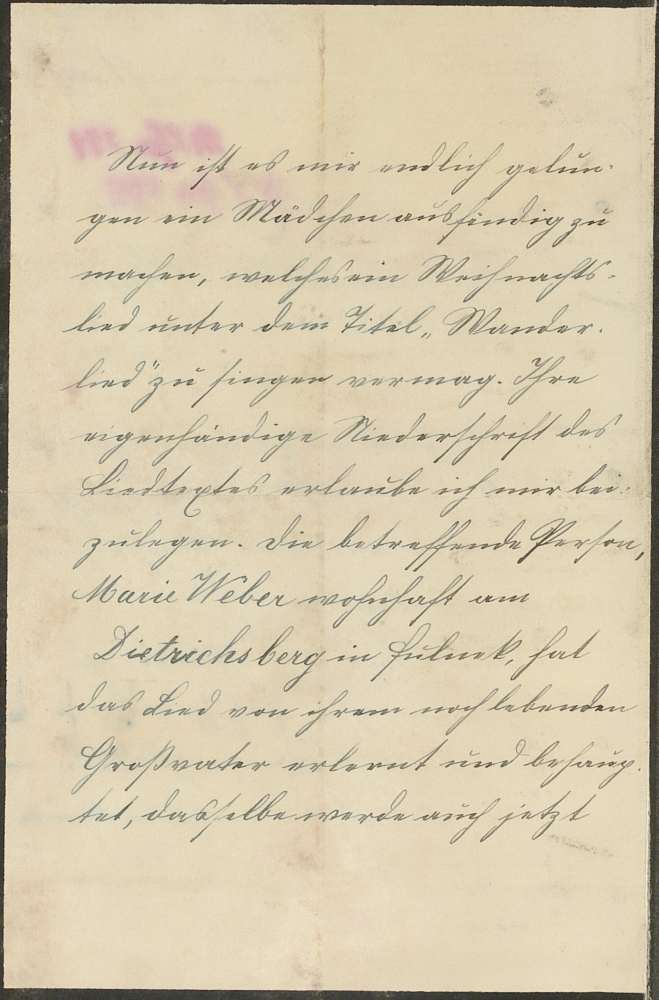 Nun ist es mir endlich gelun-
gen ein Mädchen ausfindig zu
machen, welches ein Weihnachts-
lied unter dem Titel „Wander-
lied" zu singen vermag. Ihre
eigenhändige Niederschrift des
Liedtextes erlaube ich mir bei-
zulegen. Die betreffende Person,
Marie Weber wohnhaft am
Dietrichsberg in Fulnek, hat
das Lied von ihrem noch lebenden
Großvater erlernt und behaup-
tet, dasselbe werde auch jetzt